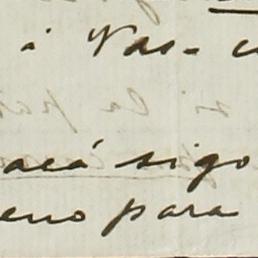 á Vas-
acá sigo
eno para